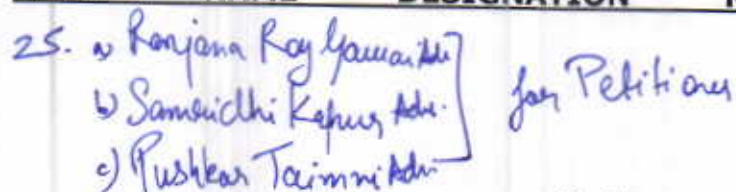 DESIGNATION
25. a) Ranjana Roy Gawai Adv.
b) Samridhi Kapur Adv.
c) Pushkar Taimni Adv.
for Petitioner